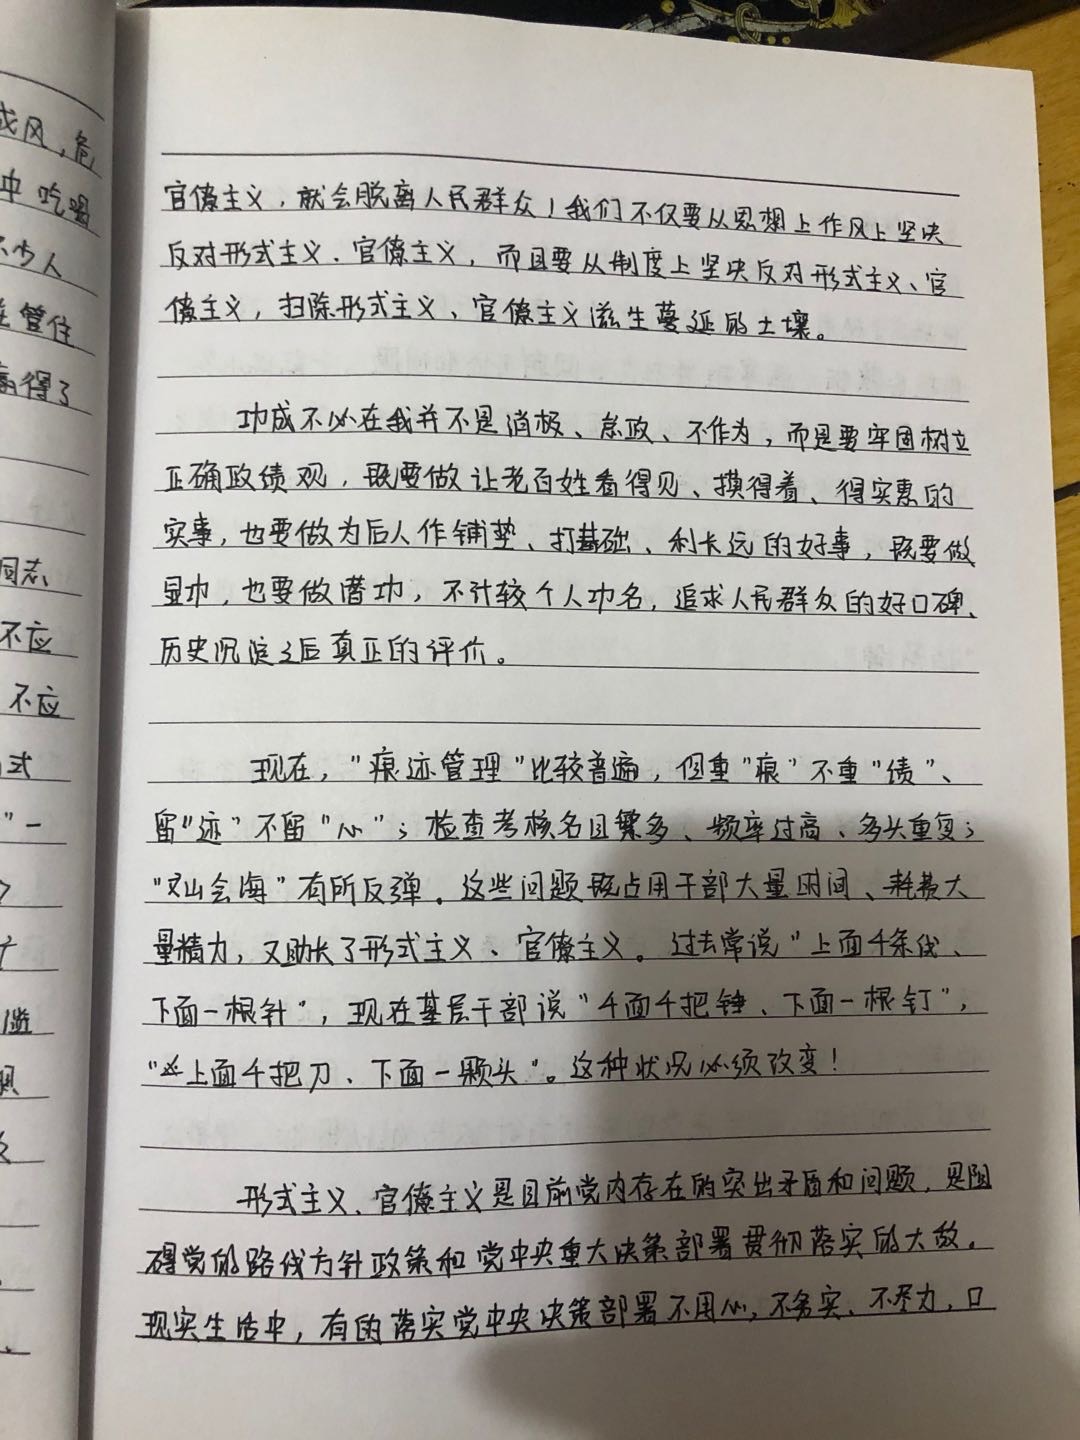 成风，危
中吃喝
不少人
管住
赢得了
同志
不应
不应
式
"一
官僚主义，就会脱离人民群众！我们不仅要从思想上作风上坚决
反对形式主义、官僚主义，而且要从制度上坚决反对形式主义、官
僚主义，扫除形式主义、官僚主义滋生蔓延的土壤。
功成不必在我并不是消极、怠政、不作为，而是要牢固树立
正确政绩观，既要做让老百姓看得见、摸得着、得实惠的
实事，也要做为后人作铺垫、打基础、利长远的好事，既要做
显功，也要做潜功，不计较个人功名，追求人民群众的好口碑、
历史沉淀之后真正的评价。
现在，"痕迹管理"比较普遍，但重"痕"不重"绩"、
留"迹"不留"心"；检查考核名目繁多、频率过高、多头重复；
"文山会海"有所反弹。这些问题既占用干部大量时间、耗费大
量精力，又助长了形式主义、官僚主义。过去常说"上面千条线、
下面一根针"，现在基层干部说"千面千把锤、下面一根钉"，
"上面千把刀、下面一颗头"。这种状况必须改变！
形式主义、官僚主义是目前党内存在的突出矛盾和问题，是阻
碍党的路线方针政策和党中央重大决策部署贯彻落实的大敌。
现实生活中，有的落实党中央决策部署不用心，不务实、不尽力，口